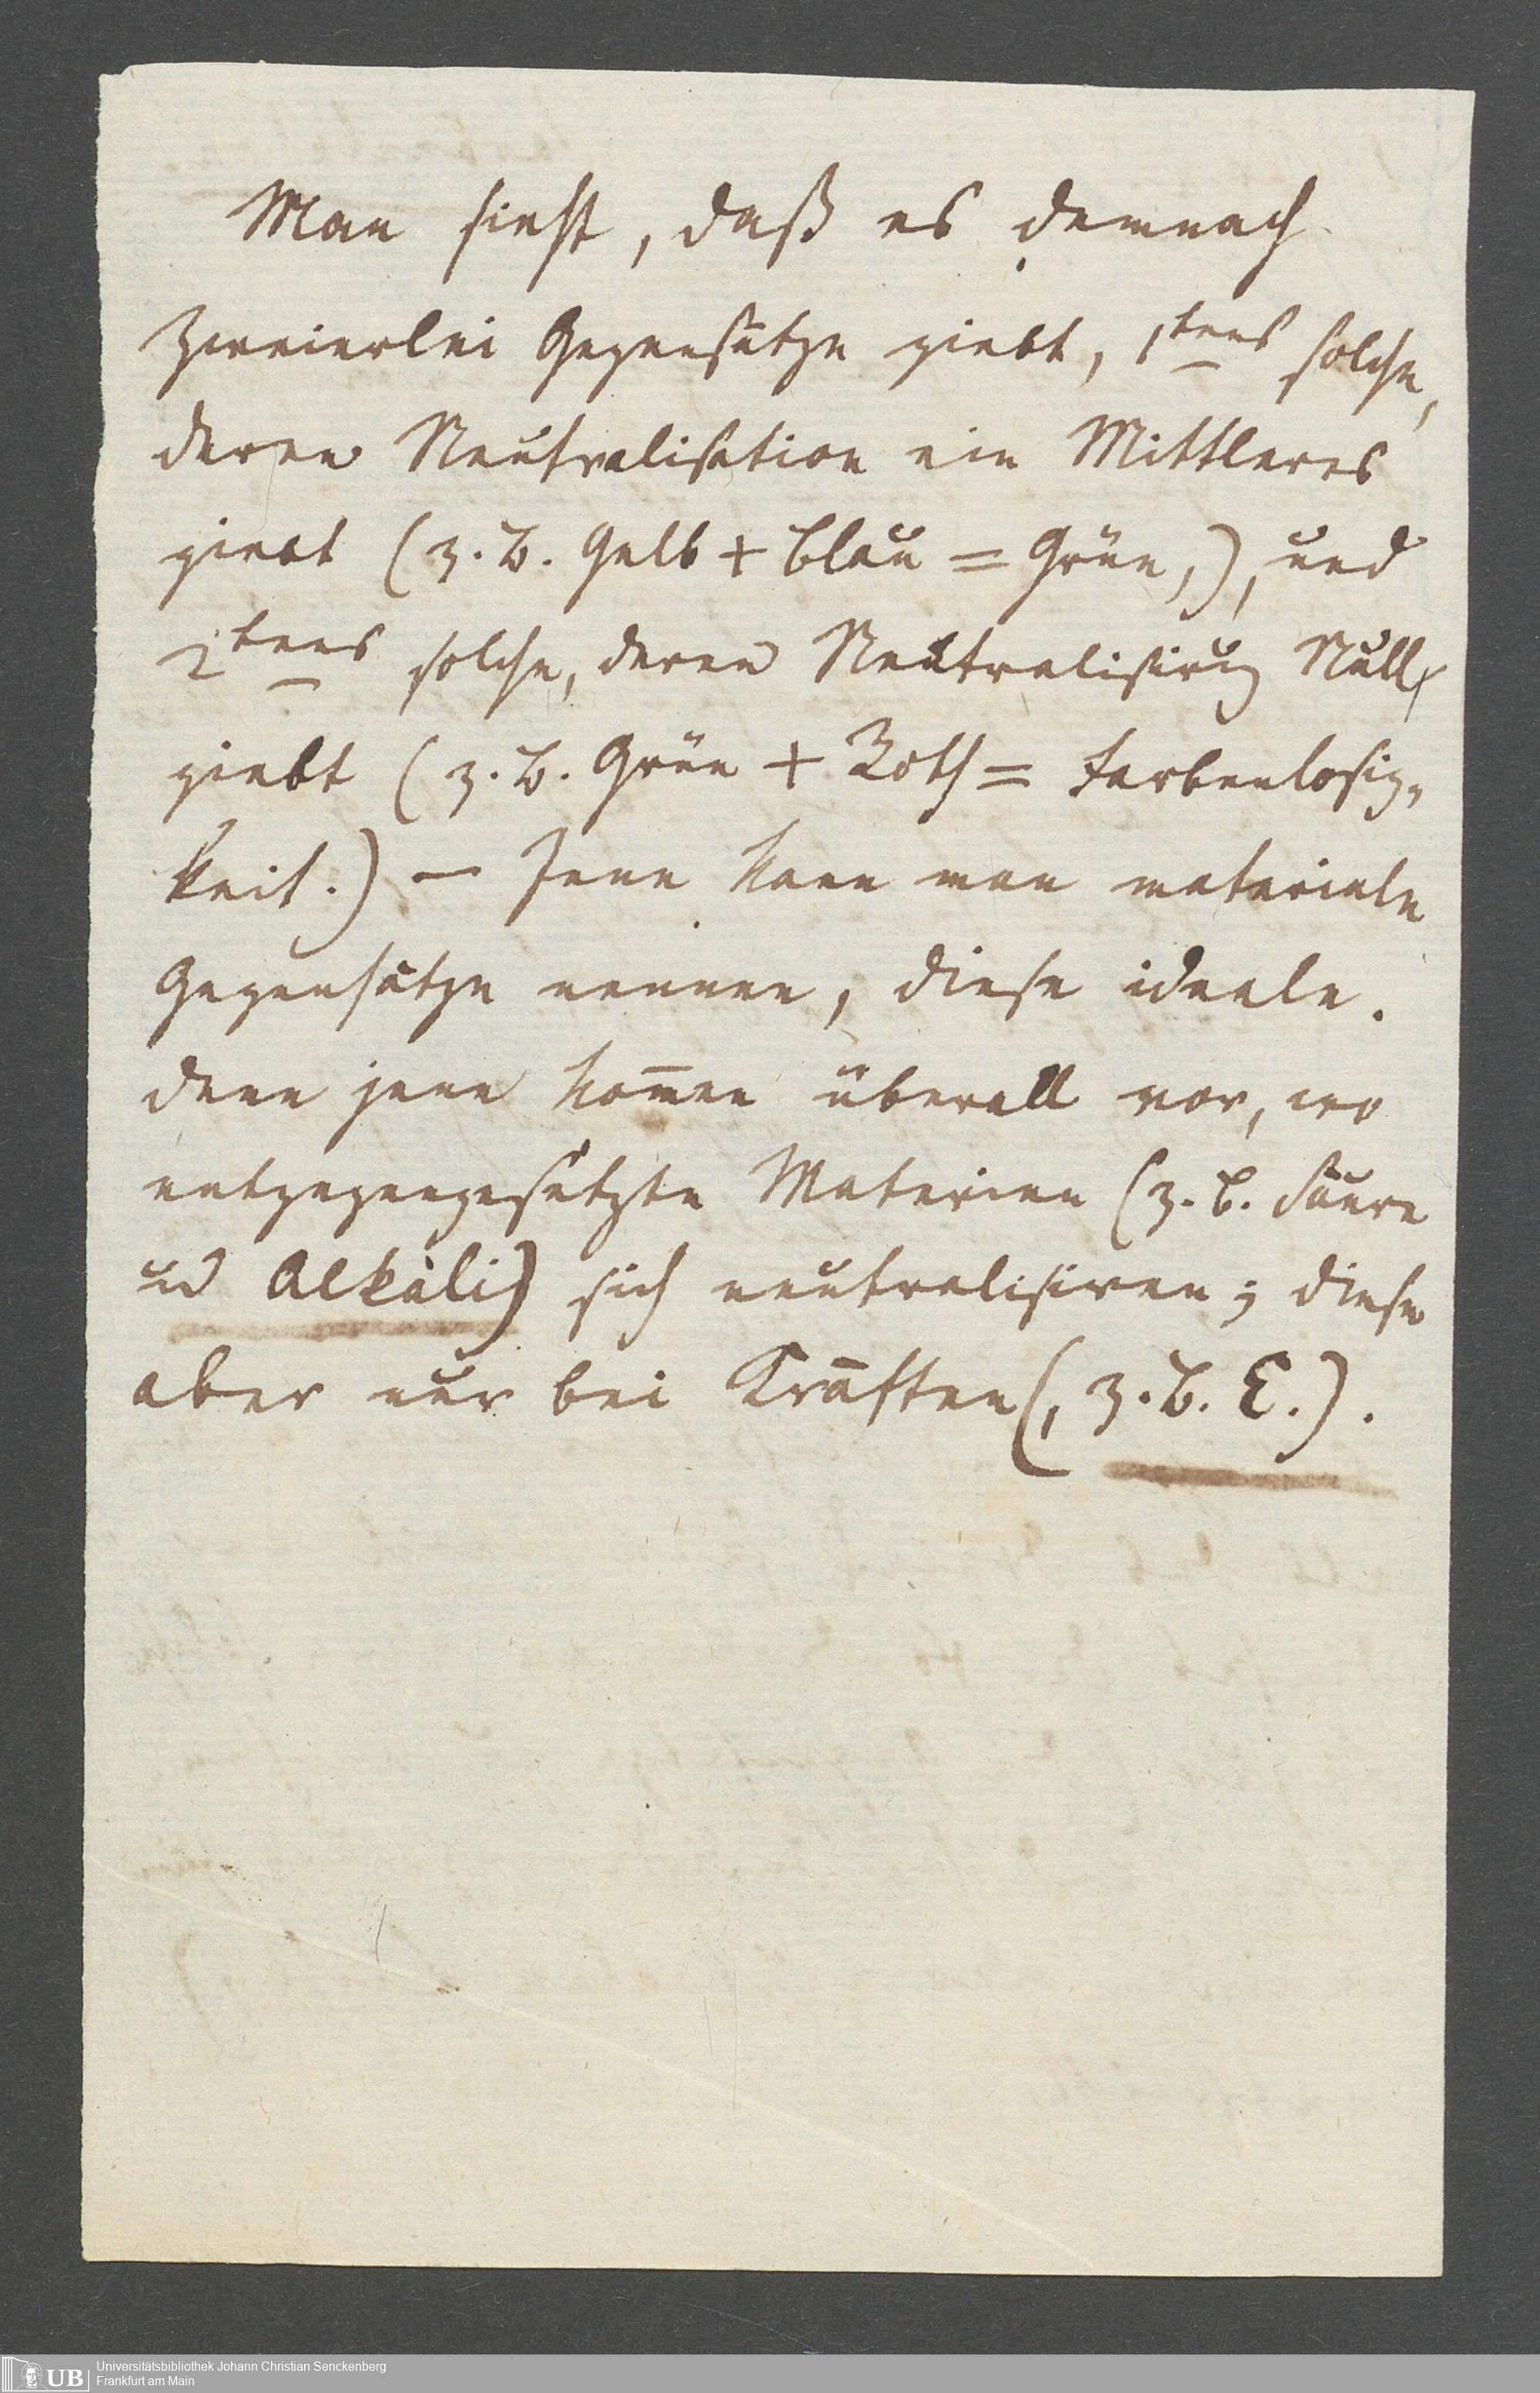 Man sieht, daß es demnach
zweierlei Gegensätze giebt, 1tens solche,
deren Neutralisation ein Mittleres
giebt (z. B. Gelb + Blau = Grün,), und
2tens solche, deren Neutralisirung Null
giebt (z. B. Grün + Roth = Farbenlosig-
keit.) — Jene kann man materiale
Gegensätze nennen, diese ideale.
denn jene kom̅en überall vor, wo
entgegengesetzte Materien (z. B. Säure
ud Alkali) sich neutralisiren; diese
aber nur bei Kräften (, z. B. E.).
UB
Universitätsbibliothek Johann Christian Senckenberg
Frankfurt am Main